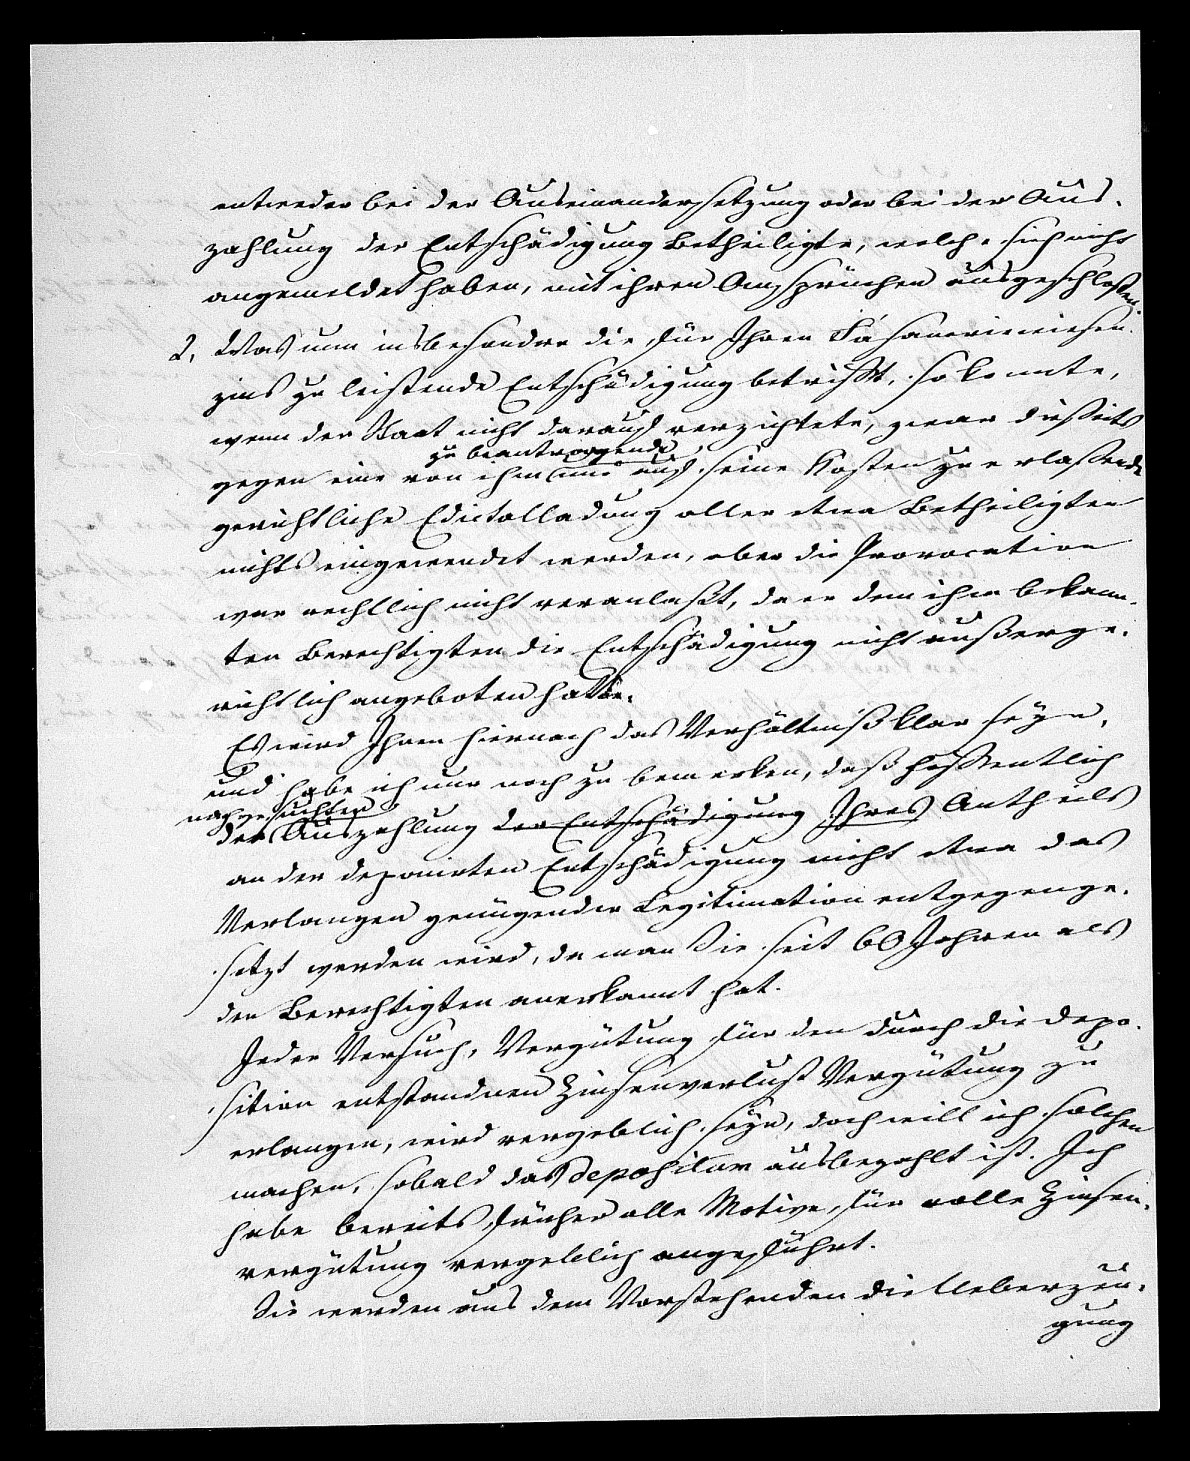 entweder bei der Auseinandersetzung oder bei der Aus-
zahlung der Entschädigung Betheiligte, welche sich nicht
angemeldet haben, mit ihren Ansprüchen ausgeschloßen.
2, Was nun insbesondre die für Ihren Fasaneriewiesen-
zins zu leistende Entschädigung betrifft, so konnte,
wenn der Staat nicht darauf verzichtete, zwar dießeits
zu beantragende
gegen eine von ihm und auf seine Kosten zu erlaßende
gerichtliche Edictalladung aller etwa Betheiligten
nichts eingewendet werden, aber die Provocation
war rechtlich nicht veranlaßt, da er dem ihm bekann-
ten Berechtigten die Entschädigung nicht außerge-
richtlich angeboten hatte.
Es wird Ihnen hiernach das Verhältniß klar seyn,
und habe ich nur noch zu bemerken, daß hoffentlich
nachgesuchten
der Auszahlung der Entschädigung Ihres Antheils
an der deponirten Entschädigung nicht etwa das
Verlangen genügender Legitimation entgegenge-
setzt werden wird, da man Sie seit 60 Jahren als
den Berechtigten anerkannt hat.
Jeder Versuch, Vergütung für den durch die Depo-
sition entstandnen Zinsenverlust Vergütung zu
erlangen, wird vergeblich seyn, doch will ich solchen
machen, sobald das Depositum ausbezahlt ist. Ich
habe bereits früher alle Motive für volle Zinsen-
vergütung vergeblich angeführt.
Sie werden aus dem Vorstehenden die Ueberzeu-
gung